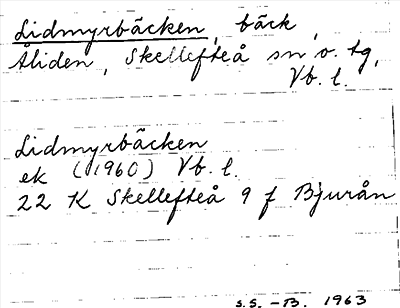 Lidmyrbäcken, bäck,
Åliden, Skellefteå sn o. tg,
Vb. l.
Lidmyrbäcken
ek (1960) Vb. l.
22 K Skellefteå 9 f Bjurån
S.S. -B. 1963